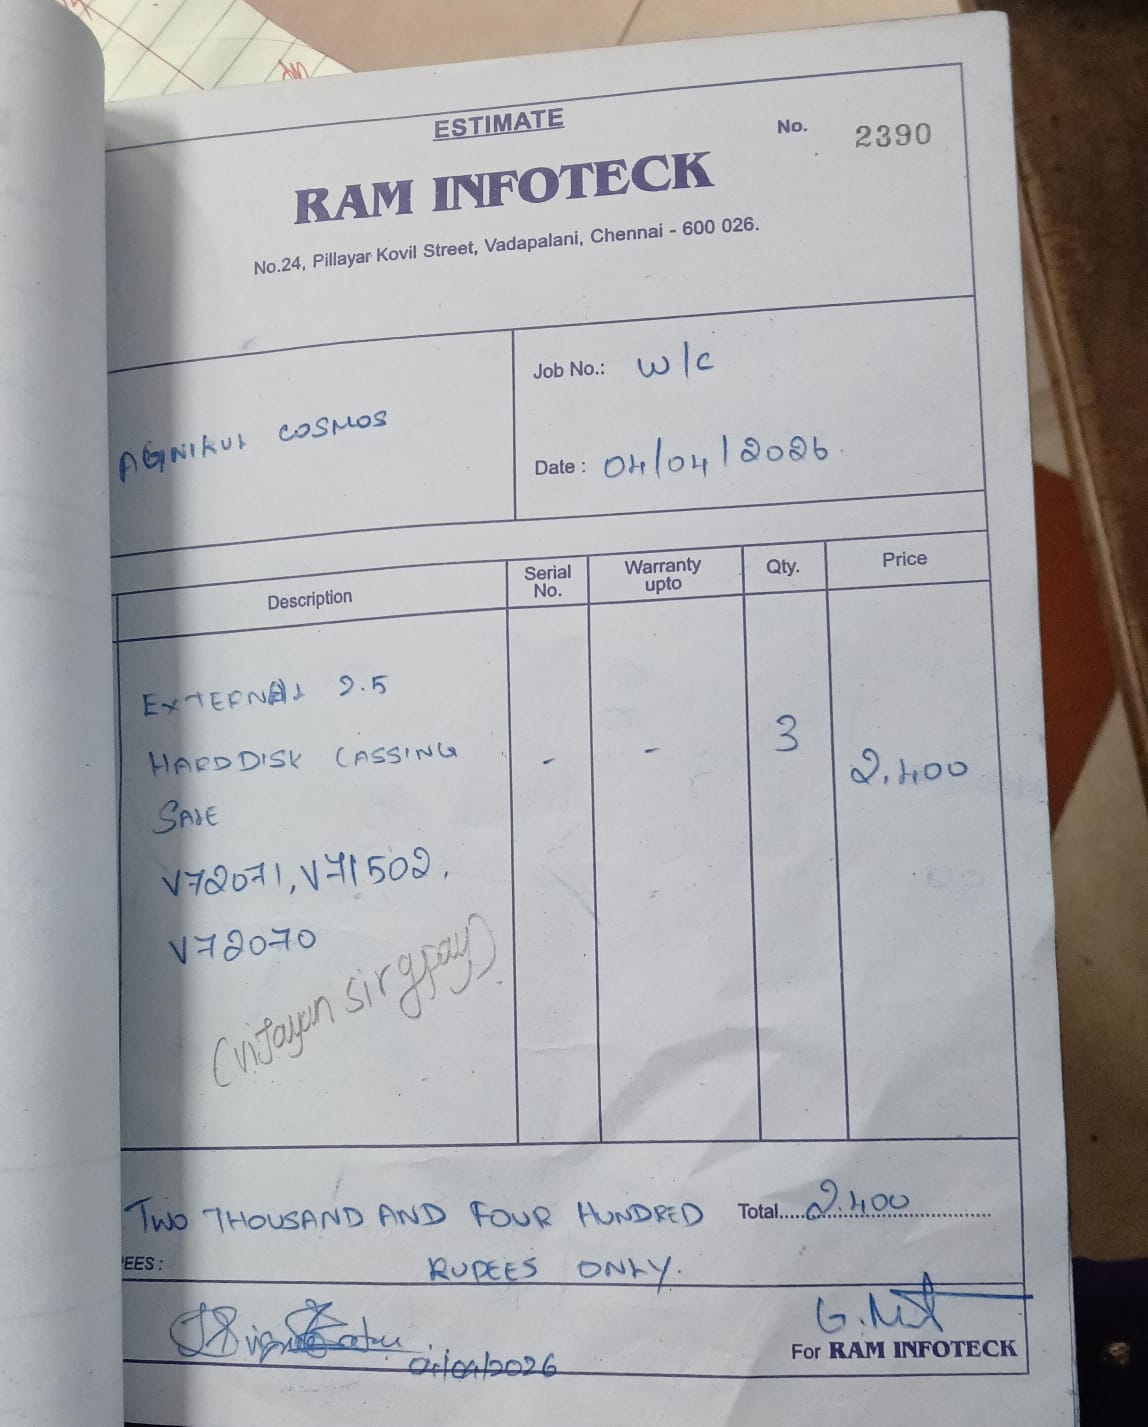 ESTIMATE
No. 2390
RAM INFOTECK
No.24, Pillayar Kovil Street, Vadapalani, Chennai - 600 026.
Job No.: W/C
AGNIKUL COSMOS
Date : 04/04/2026.
Description Serial No. Warranty upto Qty. Price
EXTERNAL 2.5
HARDDISK CASSING - - 3 2,400
SALE
V72071, V71502,
V72070
(vijayan sir gpay)
TWO THOUSAND AND FOUR HUNDRED Total..... 2,400
EES : RUPEES ONLY.
G.
04/04/2026
For RAM INFOTECK